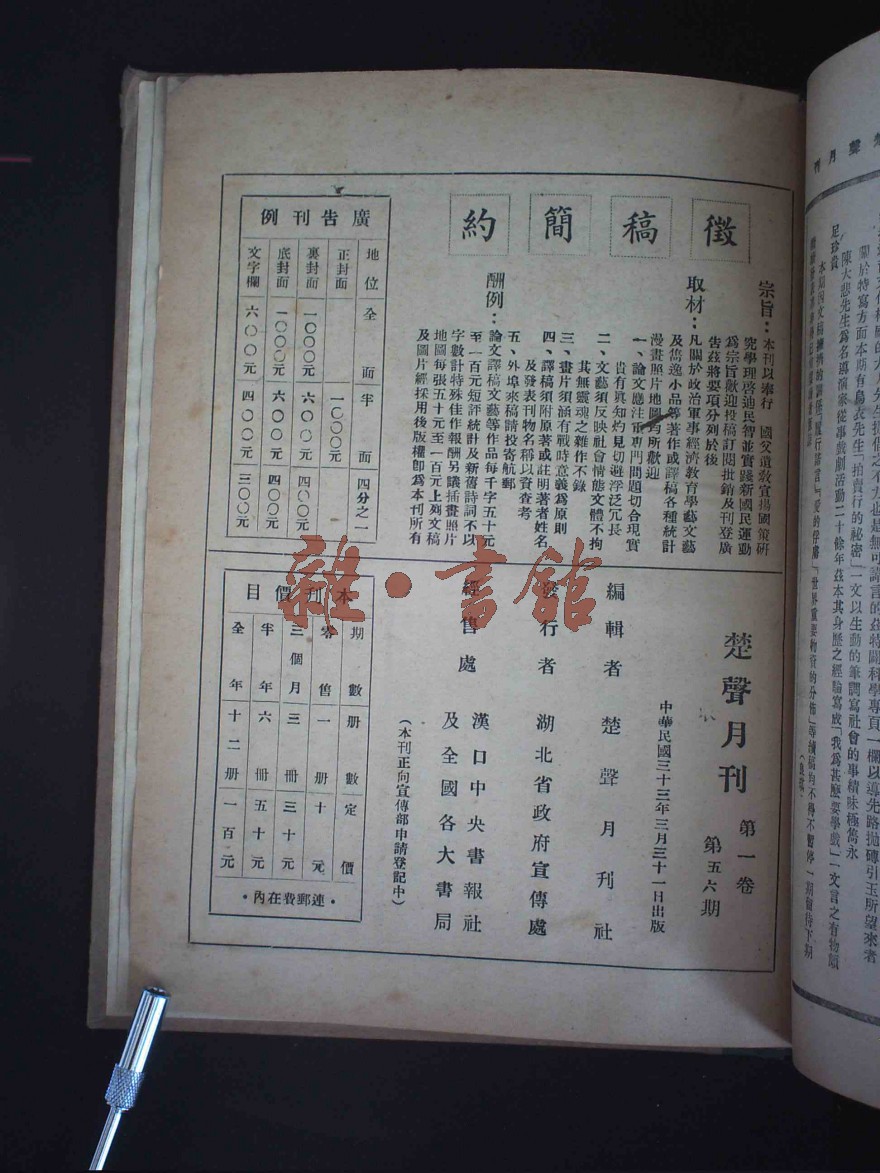 徵稿簡約
宗旨：本刊以奉行　國父遺教宣揚國策研
究學理啓迪民智並實踐新國民運動
爲宗旨歡迎投稿訂閱批銷及刊登廣
告茲將要項分列於後
取材：凡關於政治軍事經濟教育學藝文藝
及雋逸小品等著作或譯稿各種統計
漫畫照片地圖均所歡迎
一、論文應注重專門問題切合現實
貴有真知灼見切避浮泛冗長
二、文藝須反映社會情態文體不拘
其無靈魂之雜作不錄
三、畫片須涵有戰時意義爲原則
四、譯稿須附原著或註明著者姓名
及發表刊物名稱以資查考
五、外埠來稿請投寄航郵
酬例：論文譯稿文藝等作品每千字五十元
至一百元短評統計及新舊詩詞不以
字數計特殊佳作報酬另議插畫照片
地圖每張五十元至一百元上列文稿
及圖片經採用後版權卽爲本刊所有
廣告刊例
地位　全面　半面　四分之一
正封面　一〇〇〇元
裏封面　一〇〇〇元　六〇〇元　四〇〇元
底封面　一〇〇〇元　六〇〇元　四〇〇元
文字欄　六〇〇元　四〇〇元　三〇〇元
楚聲月刊　第一卷　第五六期
中華民國三十三年三月三十一日出版
編輯者　楚聲月刊社
發行者　湖北省政府宣傳處
經售處　漢口中央書報社
及全國各大書局
（本刊正向宣傳部申請登記中）
本刊價目
期數　册數　定價
零售　一册　十元
三個月　三册　三十元
半年　六册　五十元
全年　十二册　一百元
・連郵費在內・
雜・書館
聲月刊
關於特寫方面本期有烏衣先生「拍賣行的祕密」一文以生動的筆調寫社會的事精味極雋永
陳大悲先生爲名導演家從事戲劇活動二十餘年茲本其身歷之經驗寫成「我爲甚麼要學戲」一文言之有物頗
足珍貴